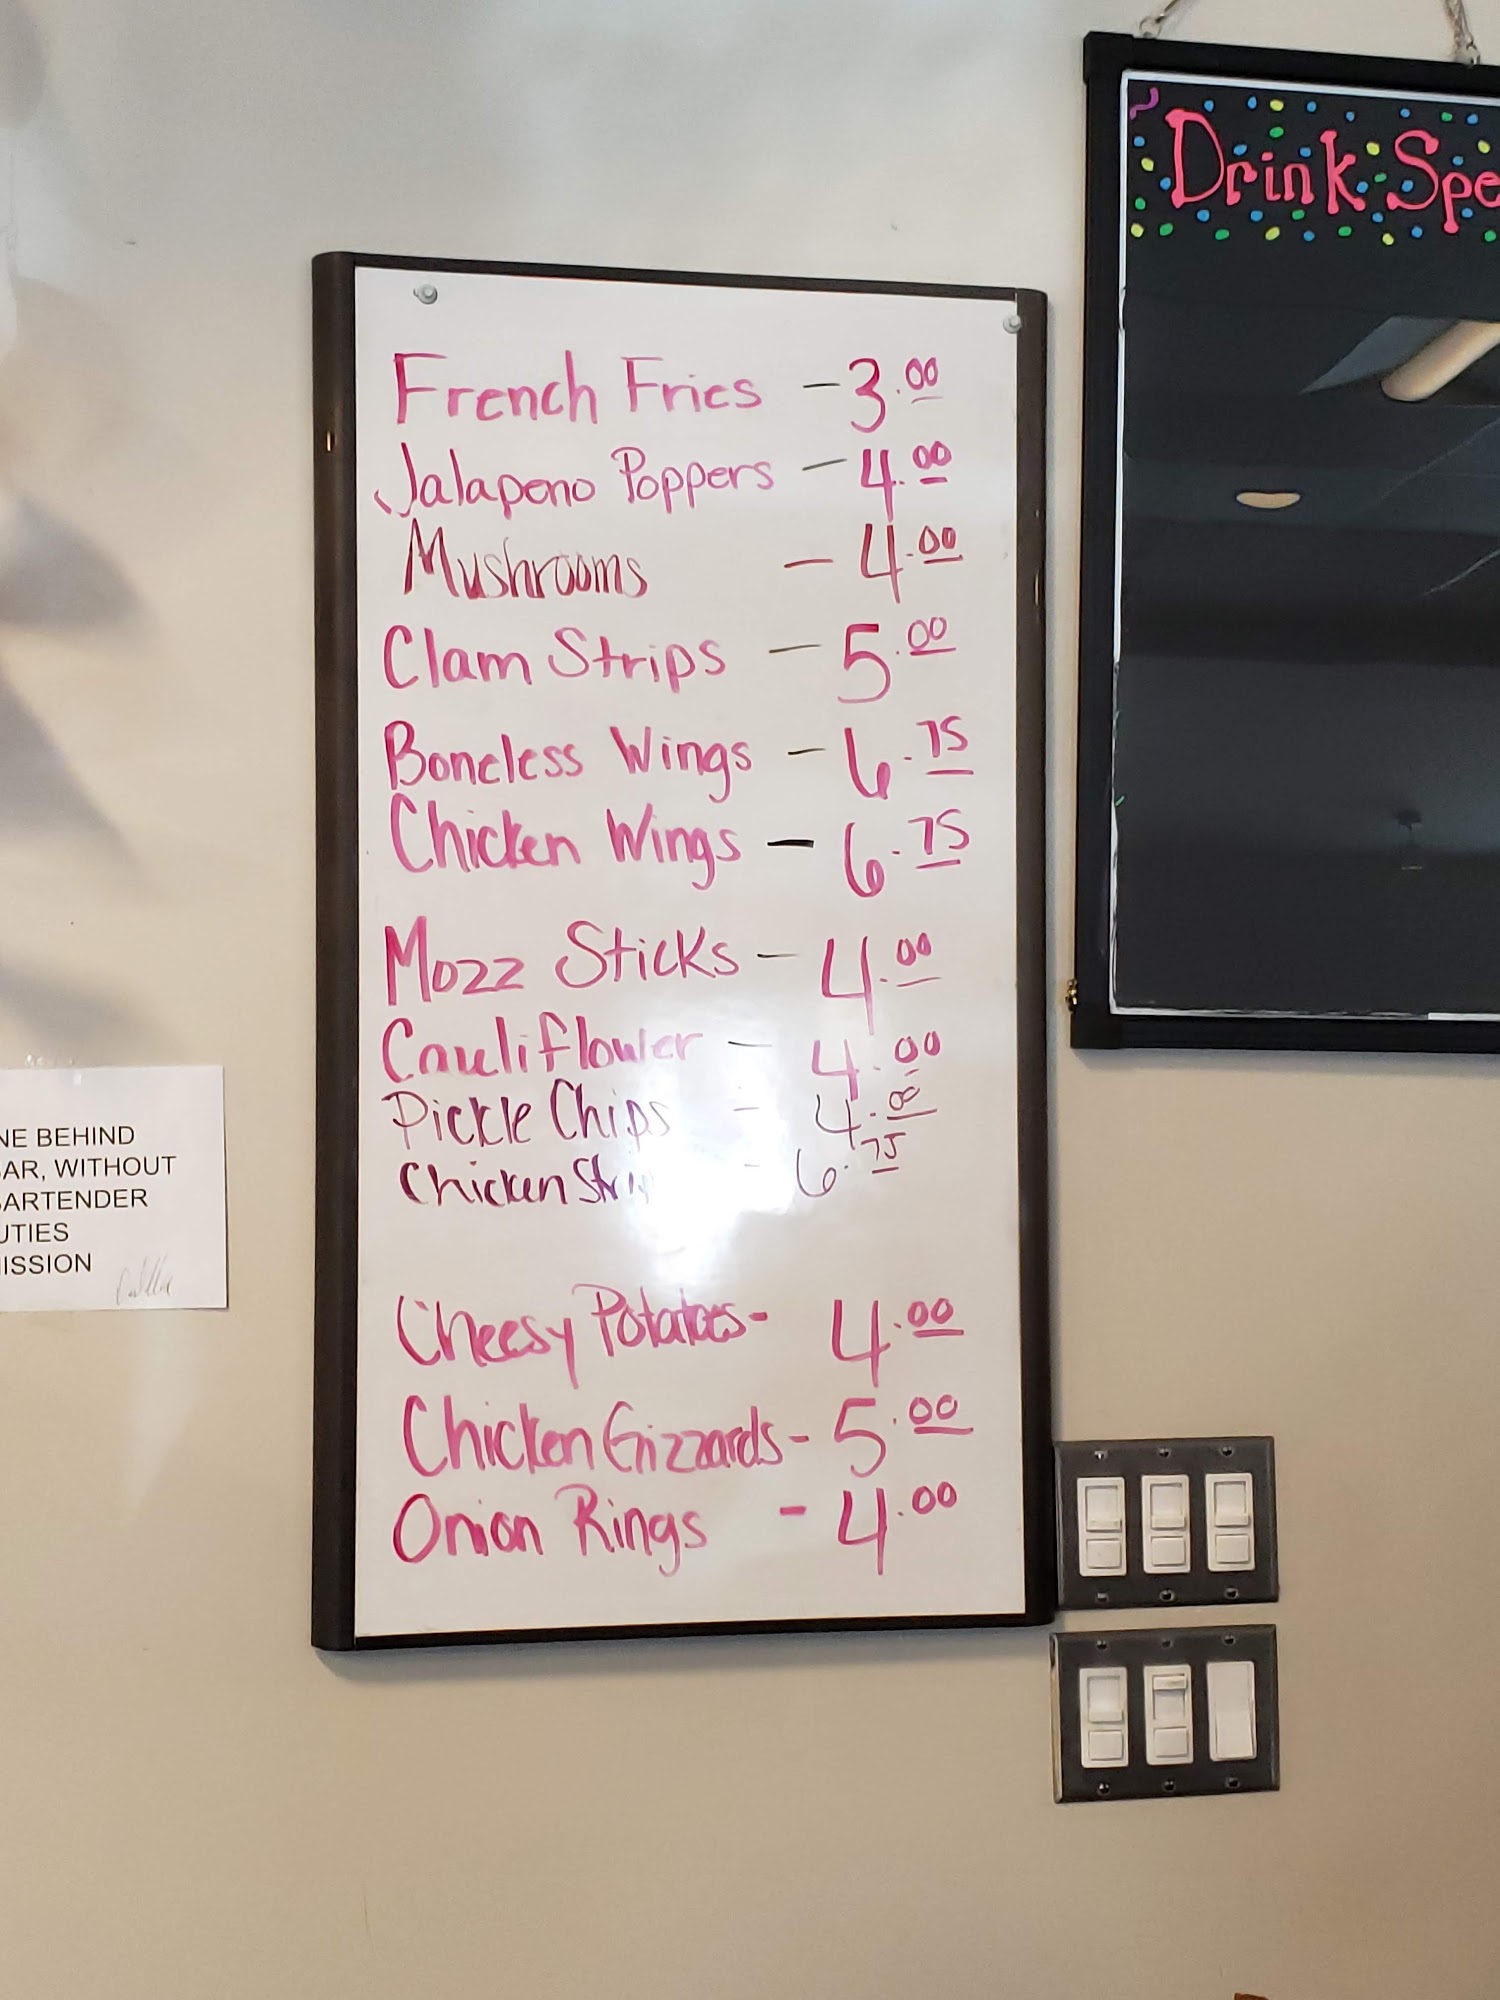 French Fries - 3.00
Jalapeno Poppers - 4.00
Mushrooms - 4.00
Clam Strips - 5.00
Boneless Wings - 6.75
Chicken Wings - 6.75
Mozz Sticks - 4.00
Cauliflower - 4.00
Pickle Chips - 4.00
Chicken Stri - 6.75
Cheesy Potatoes - 4.00
Chicken Gizzards - 5.00
Onion Rings - 4.00
Drink Spe
NE BEHIND
AR, WITHOUT
BARTENDER
UTIES
ISSION